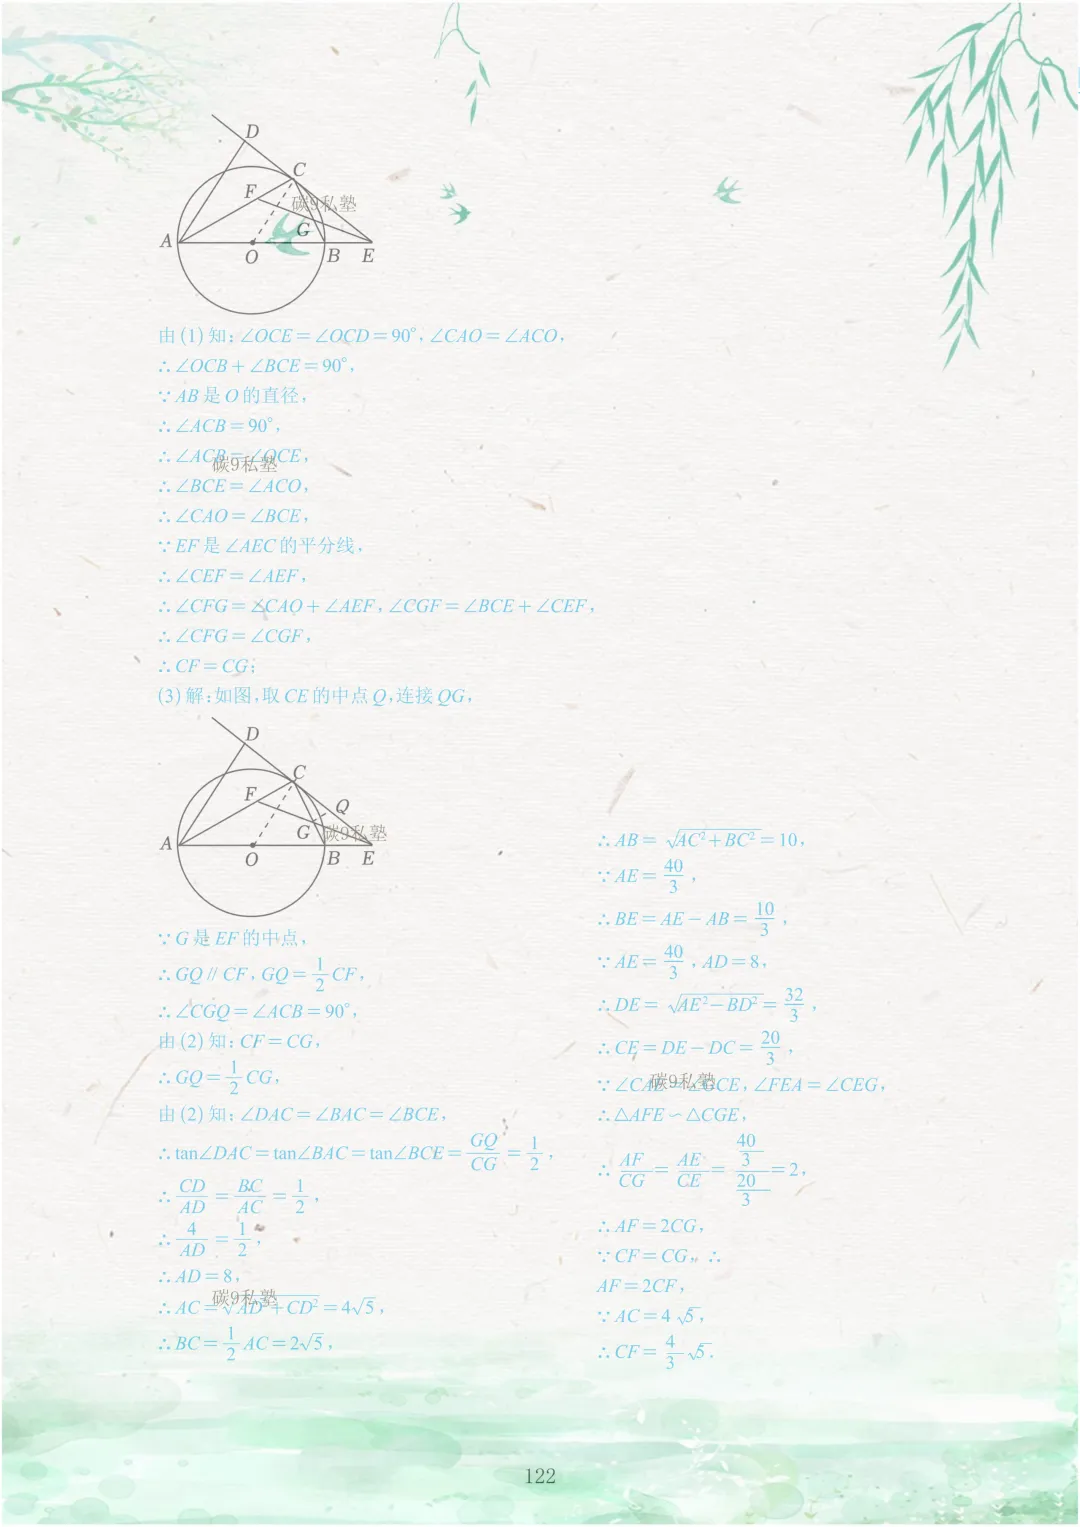 D
C
F
碳9私塾
G
A
O
B
E
由(1)知:∠OCE=∠OCD=90°,∠CAO=∠ACO,
∴∠OCB+∠BCE=90°,
∵AB是O的直径,
∴∠ACB=90°,
∴∠ACB=∠OCE,
碳9私塾
∴∠BCE=∠ACO,
∴∠CAO=∠BCE,
∵EF是∠AEC的平分线,
∴∠CEF=∠AEF,
∴∠CFG=∠CAO+∠AEF,∠CGF=∠BCE+∠CEF,
∴∠CFG=∠CGF,
∴CF=CG;
(3)解:如图,取CE的中点Q,连接QG,
D
C
F
Q
G
碳9私塾
A
O
B
E
∵G是EF的中点,
∴GQ∥CF,GQ=1/2CF,
∴∠CGQ=∠ACB=90°,
由(2)知:CF=CG,
∴GQ=1/2CG,
由(2)知:∠DAC=∠BAC=∠BCE,
∴tan∠DAC=tan∠BAC=tan∠BCE=GQ/CG=1/2,
∴CD/AD=BC/AC=1/2,
∴4/AD=1/2,
∴AD=8,
碳9私塾
∴AC=√(AD²+CD²)=4√5,
∴BC=1/2AC=2√5,
∴AB=√(AC²+BC²)=10,
∵AE=40/3,
∴BE=AE-AB=10/3,
∵AE=40/3,AD=8,
∴DE=√(AE²-BD²)=32/3,
∴CE=DE-DC=20/3,
碳9私塾
∵∠CAE=∠BCE,∠FEA=∠CEG,
∴△AFE∽△CGE,
∴AF/CG=AE/CE=(40/3)/(20/3)=2,
∴AF=2CG,
∵CF=CG,∴
AF=2CF,
∵AC=4√5,
∴CF=4/3√5.
122